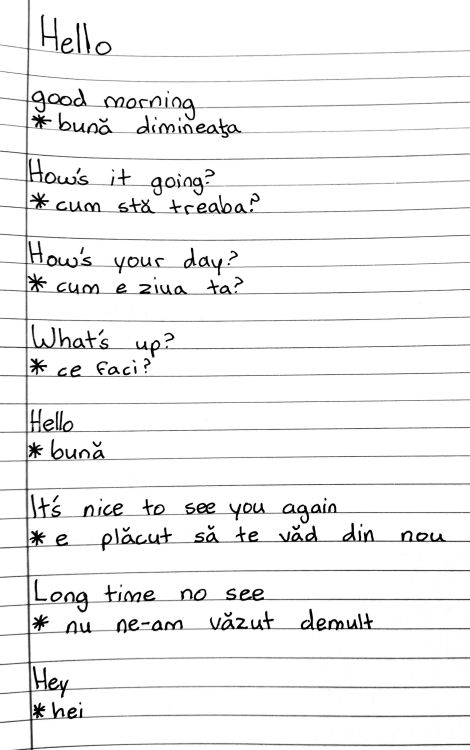 Hello
good morning
* bună dimineaţa
How's it going?
* cum stă treaba?
How's your day?
* cum e ziua ta?
What's up?
* ce faci?
Hello
* bună
It's nice to see you again
* e plăcut să te văd din nou
Long time no see
* nu ne-am văzut demult
Hey
* hei